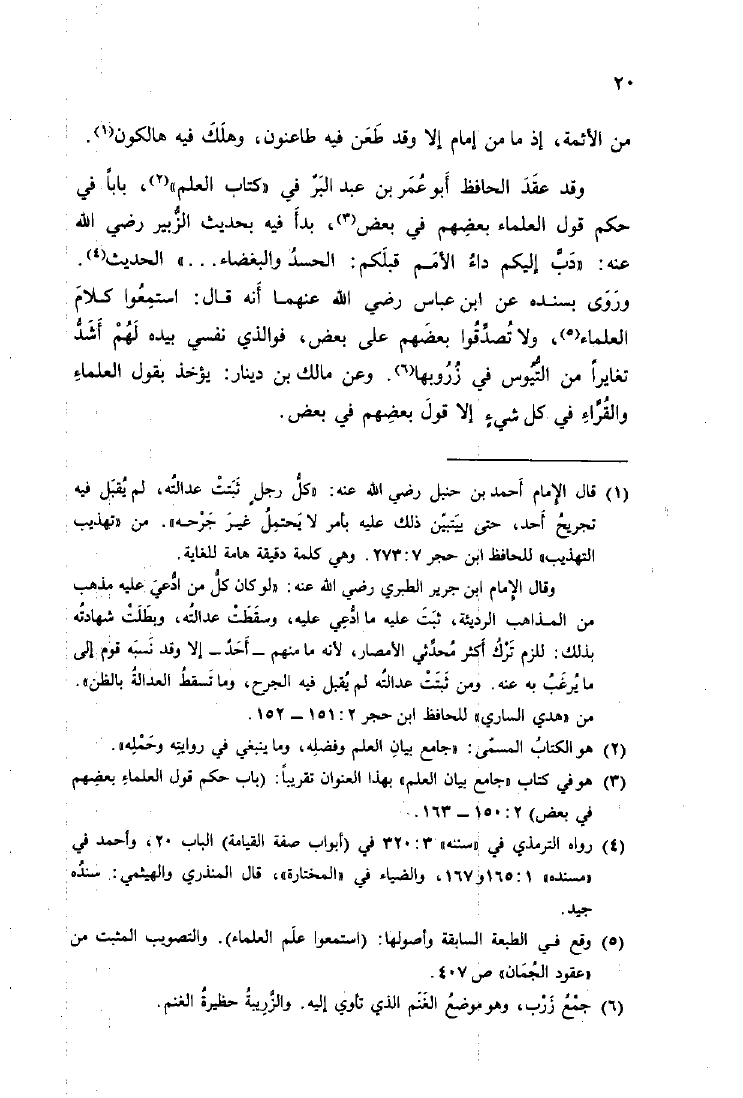 ٢٠
من الأئمة، إذ ما من إمام إلا وقد طَعَن فيه طاعنون، وهلَكَ فيه هالكون(١).
وقد عقَدَ الحافظ أبو عُمَر بن عبد البَرّ في «كتاب العلم»(٢)، باباً في
حكم قول العلماء بعضِهم في بعض(٣)، بدأَ فيه بحديث الزُّبير رضي الله
عنه: «دَبَّ إليكم داءُ الأمَم قبلَكم: الحسدُ والبغضاء...» الحديث(٤).
ورَوَى بسنده عن ابن عباس رضي الله عنهما أنه قال: استمِعُوا كلامَ
العلماء(٥)، ولا تُصدِّقُوا بعضَهم على بعض، فوالذي نفسي بيده لَهُمْ أَشَدُّ
تغايراً من التُّيوس في زُرُوبها(٦). وعن مالك بن دينار: يؤخذ بقول العلماءِ
والقُرَّاءِ في كل شيءٍ إلا قولَ بعضِهم في بعض.
(١) قال الإمام أحمد بن حنبل رضي الله عنه: «كلُّ رجلٍ ثَبَتتْ عدالتُه، لم يُقبَل فيه
تجريحُ أحد، حتى يَتبيّن ذلك عليه بأمر لا يَحتمِلُ غيرَ جَرْحه». من «تهذيب
التهذيب» للحافظ ابن حجر ٧: ٢٧٣. وهي كلمة دقيقة هامة للغاية.
وقال الإمام ابن جرير الطبري رضي الله عنه: «لو كان كلُّ من ادُّعيَ عليه مذهب
من المذاهب الرديئة، ثبَتَ عليه ما ادُّعِي عليه، وسقَطَتْ عدالتُه، وبطَلَتْ شهادتُه
بذلك: للزم تَرْكُ أكثرِ مُحدِّثي الأمصار، لأنه ما منهم ــ أَحَدٌ ــ إلا وقد نَسبَه قوم إلى
ما يُرغَبُ به عنه. ومن ثبَتَتْ عدالتُه لم يُقبل فيه الجرح، وما تَسقطُ العدالةُ بالظن».
من «هدي الساري» للحافظ ابن حجر ٢: ١٥١ ــ ١٥٢.
(٢) هو الكتابُ المسمّى: «جامع بيانِ العلم وفضلِه، وما ينبغي في روايتِه وحَمْلِه».
(٣) هو في كتاب «جامع بيان العلم» بهذا العنوان تقريباً: (باب حكم قول العلماءِ بعضِهم
في بعض) ٢: ١٥٠ ــ ١٦٣.
(٤) رواه الترمذي في «سننه» ٣: ٣٢٠ في (أبواب صفة القيامة) الباب ٢٠، وأحمد في
«مسنده» ١: ١٦٥ و١٦٧، والضياء في «المختارة»، قال المنذري والهيثمي: سندُه
جيد.
(٥) وقع في الطبعة السابقة وأصولها: (استمعوا علم العلماء). والتصويب المثبت من
«عقود الجُمَان» ص ٤٠٧.
(٦) جمْعُ زَرْب، وهو موضعُ الغَنَم الذي تأوي إليه. والزَّرِيبةُ حظيرةُ الغنم.